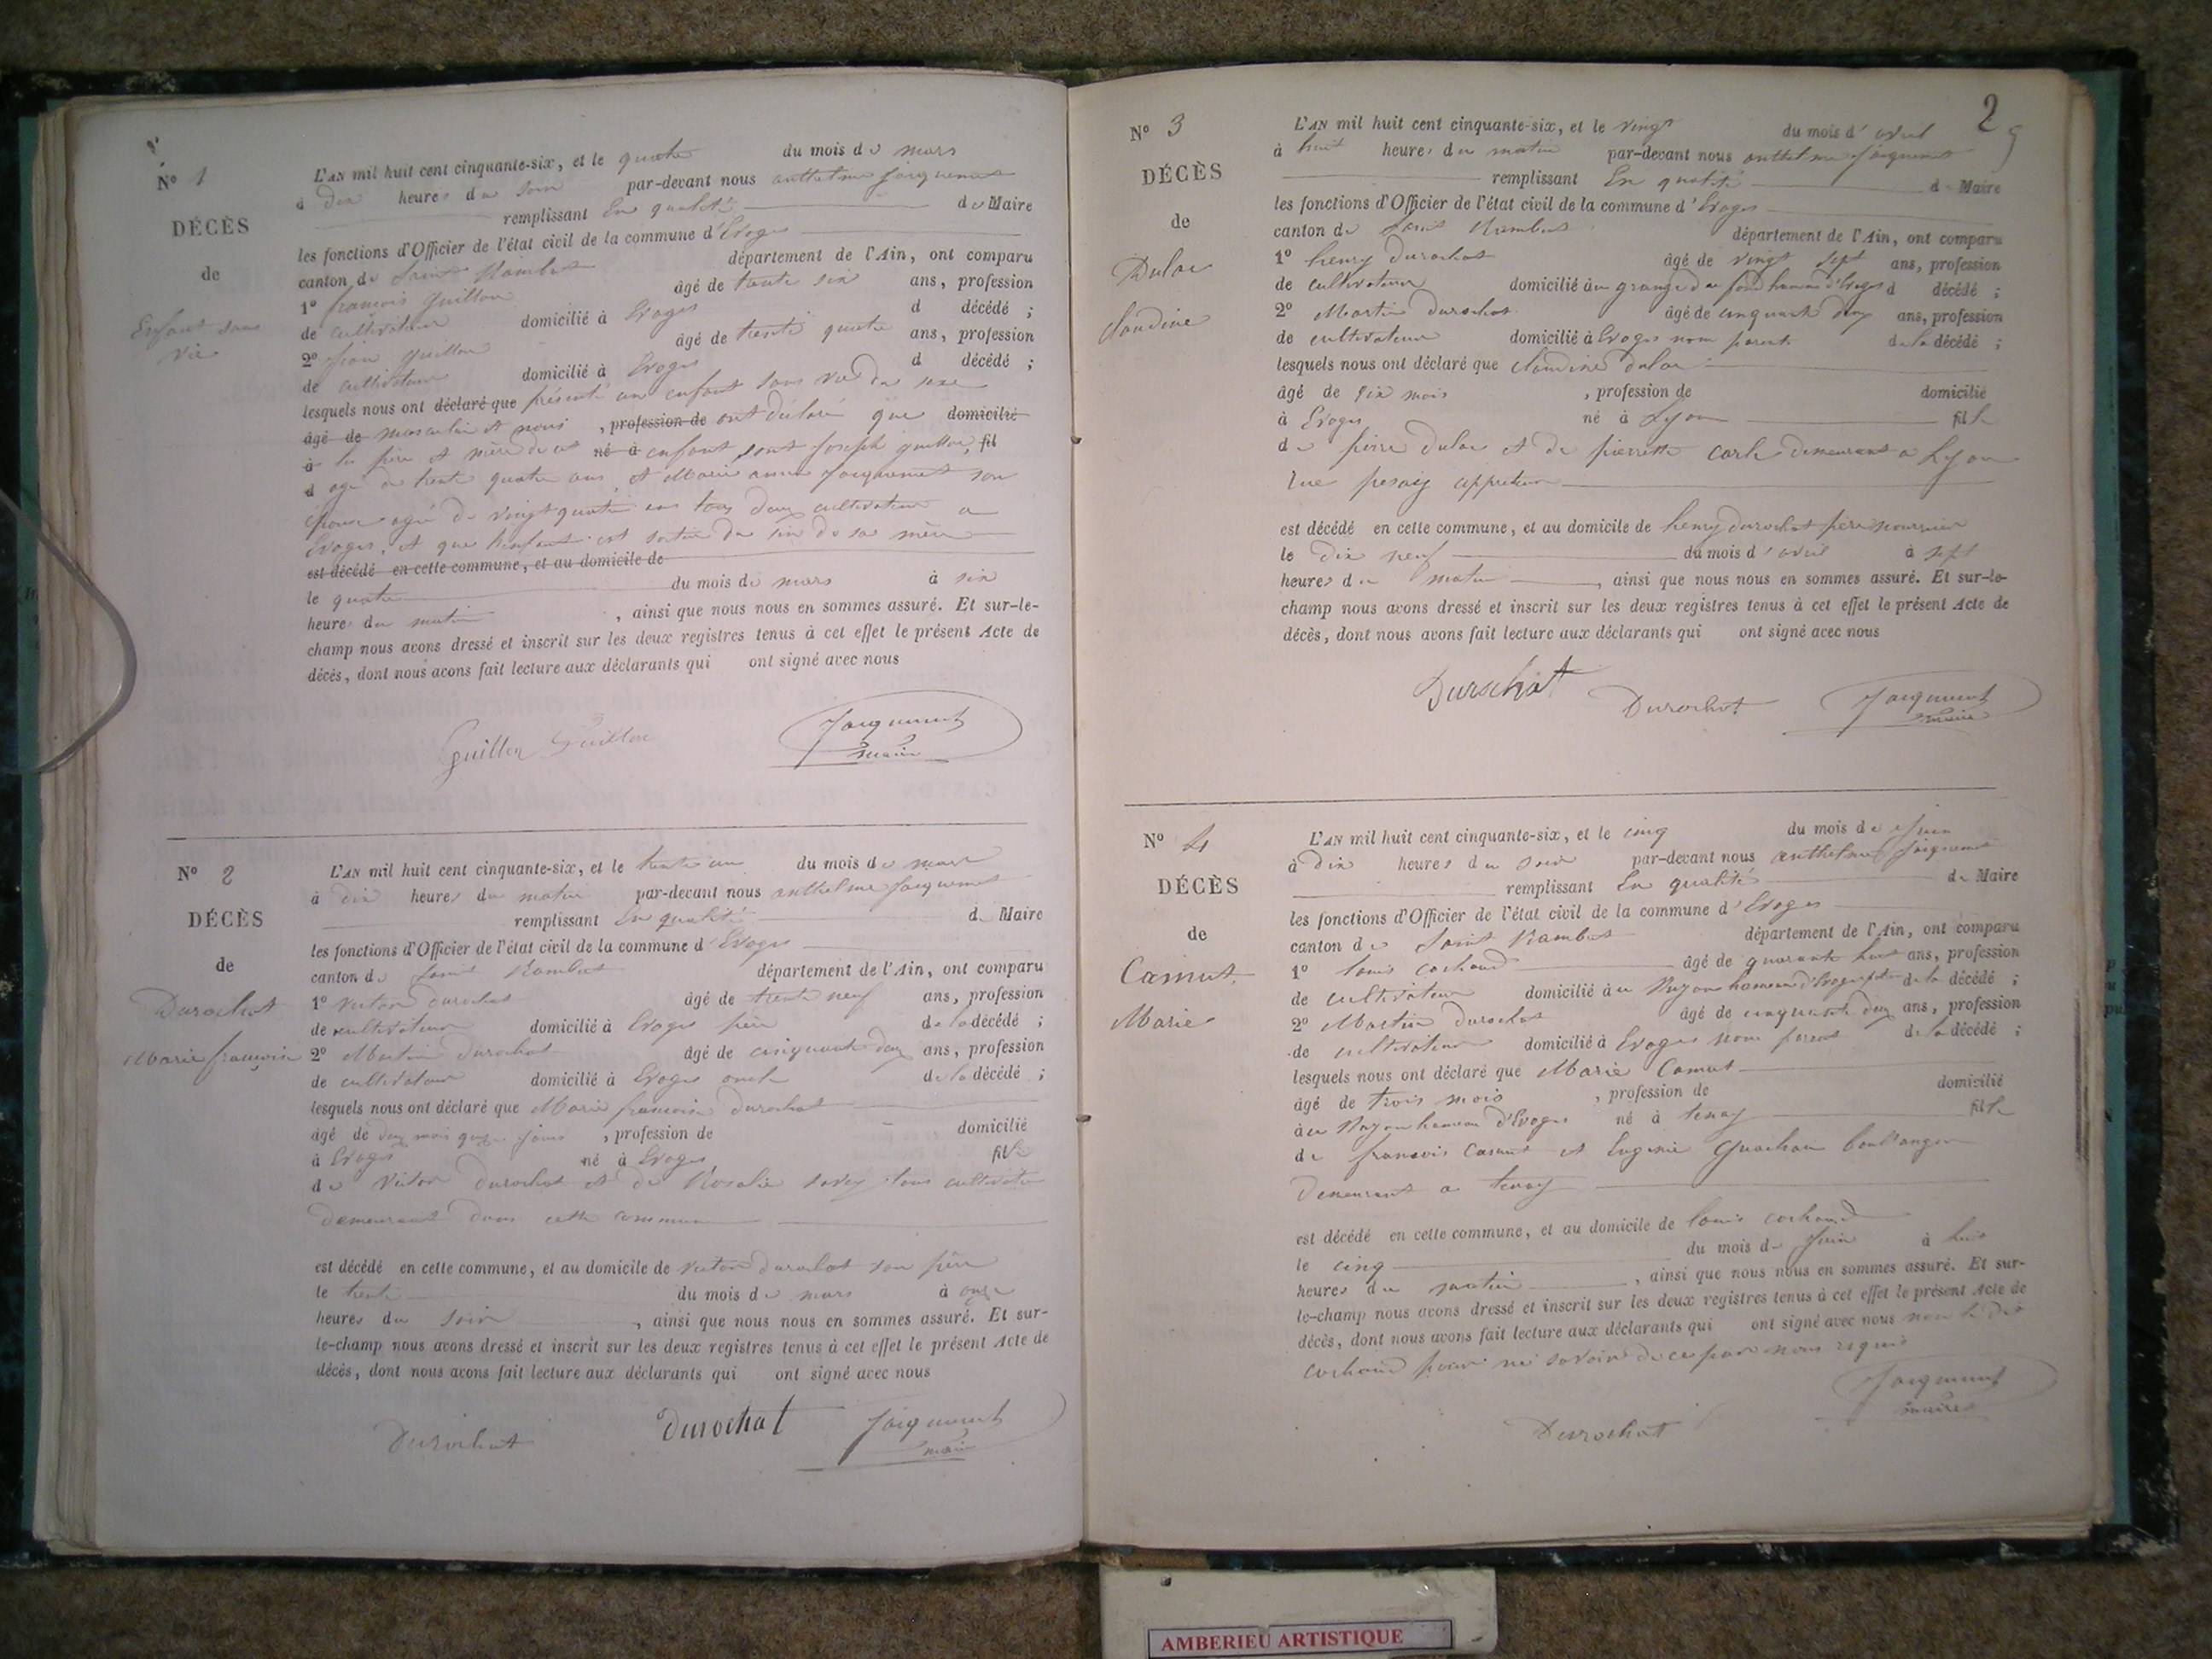 N° 1
DÉCÈS
de
Enfant sans
vie
L'AN mil huit cent cinquante-six, et le quatre du mois de mars
à dix heures du soir par-devant nous anthelme Jacquemet
remplissant En qualité de Maire
les fonctions d'Officier de l'état civil de la commune d'Evoges
canton de Saint Rambert département de l'Ain, ont comparu
1° françois Guillon âgé de trente six ans, profession
de cultivateur domicilié à Evoges d décédé ;
2° Guillon âgé de trente quatre ans, profession
de cultivateur domicilié à Evoges d décédé ;
lesquels nous ont déclaré que présenté un enfant sans vie du sexe
âgé de masculin et nous , profession de ont déclaré que domicilié
à les père et mère de cet né à enfant sont joseph guillon, fil
d agé de trente quatre ans, et Marie anne Jacquemet son
épouse agée de vingt quatre ans tous deux cultivateur a
Evoges, et que l'enfant est sortie du sin de sa mère
est décédé en cette commune, et au domicile de
le quatre du mois de mars à six
heures du matin , ainsi que nous nous en sommes assuré. Et sur-le-
champ nous avons dressé et inscrit sur les deux registres tenus à cet effet le présent Acte de
décès, dont nous avons fait lecture aux déclarants qui ont signé avec nous
Guillon Guillon Jacquemet
maire
N° 2
DÉCÈS
de
Durochat
Marie françoise
L'AN mil huit cent cinquante-six, et le trente un du mois de mars
à dix heures du matin par-devant nous anthelme Jacquemet
remplissant En qualité de Maire
les fonctions d'Officier de l'état civil de la commune d'Evoges
canton de Saint Rambert département de l'Ain, ont comparu
1° victor durochat âgé de trente neuf ans, profession
de cultivateur domicilié à Evoges père de la décédé ;
2° Martin durochat âgé de cinquante deux ans, profession
de cultivateur domicilié à Evoges oncle de la décédé ;
lesquels nous ont déclaré que Marie françoise durochat
âgé de deux mois jours , profession de domicilié
à Evoges né à Evoges fille
de Victor durochat et de Rosalie tous cultivateur
demeurant dans cette commune
est décédé en cette commune, et au domicile de victor durochat son père
le trente du mois de mars à onze
heures du soir , ainsi que nous nous en sommes assuré. Et sur-
le-champ nous avons dressé et inscrit sur les deux registres tenus à cet effet le présent Acte de
décès, dont nous avons fait lecture aux déclarants qui ont signé avec nous
Durochat durochat Jacquemet
maire
2
N° 3
DÉCÈS
de
Dulac
claudine
L'AN mil huit cent cinquante-six, et le vingt du mois d'avril
à huit heures du matin par-devant nous anthelme Jacquemet
remplissant En qualité de Maire
les fonctions d'Officier de l'état civil de la commune d'Evoges
canton de Saint Rambert département de l'Ain, ont comparu
1° henry durochat âgé de vingt sept ans, profession
de cultivateur domicilié au grange du fond hameau d'Evoges d décédé ;
2° Martin durochat âgé de cinquante deux ans, profession
de cultivateur domicilié à Evoges nom parent de la décédé ;
lesquels nous ont déclaré que claudine dulac
âgé de six mois , profession de domicilié
à Evoges né à Lyon fille
de pierre dulac et de pierrette demeurant a Lyon
rue appreteur
est décédé en cette commune, et au domicile de henry durochat père nourricier
le dix neuf du mois d'avril à sept
heures du matin , ainsi que nous nous en sommes assuré. Et sur-le-
champ nous avons dressé et inscrit sur les deux registres tenus à cet effet le présent Acte de
décès, dont nous avons fait lecture aux déclarants qui ont signé avec nous
Durochat Durochat Jacquemet
maire
N° 4
DÉCÈS
de
Camut
Marie
L'AN mil huit cent cinquante-six, et le cinq du mois de juin
à dix heures du soir par-devant nous anthelme Jacquemet
remplissant En qualité de Maire
les fonctions d'Officier de l'état civil de la commune d'Evoges
canton de Saint Rambert département de l'Ain, ont comparu
1° louis cochaud âgé de quarante huit ans, profession
de cultivateur domicilié au hameau d'Evoges de la décédé ;
2° Martin durochat âgé de cinquante deux ans, profession
de cultivateur domicilié à Evoges nom parent de la décédé ;
lesquels nous ont déclaré que Marie Camut
âgé de trois mois , profession de domicilié
au hameau d'Evoges né à tenay fille
de francois Camut et Eugenie boullanger
demeurant a tenay
est décédé en cette commune, et au domicile de louis cochaud
le cinq du mois de juin à huit
heures du matin , ainsi que nous nous en sommes assuré. Et sur-
le-champ nous avons dressé et inscrit sur les deux registres tenus à cet effet le présent Acte de
décès, dont nous avons fait lecture aux déclarants qui ont signé avec nous non le dit
cochaud pour ne savoir de ce par nous requis
Durochat Jacquemet
maire
AMBERIEU ARTISTIQUE